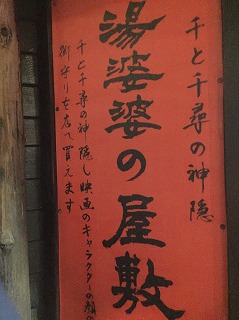 千と千尋の神隠
湯婆婆の屋敷
千と千尋の神隠し映画のキャラクターの顔の
御守りを店で買えます。